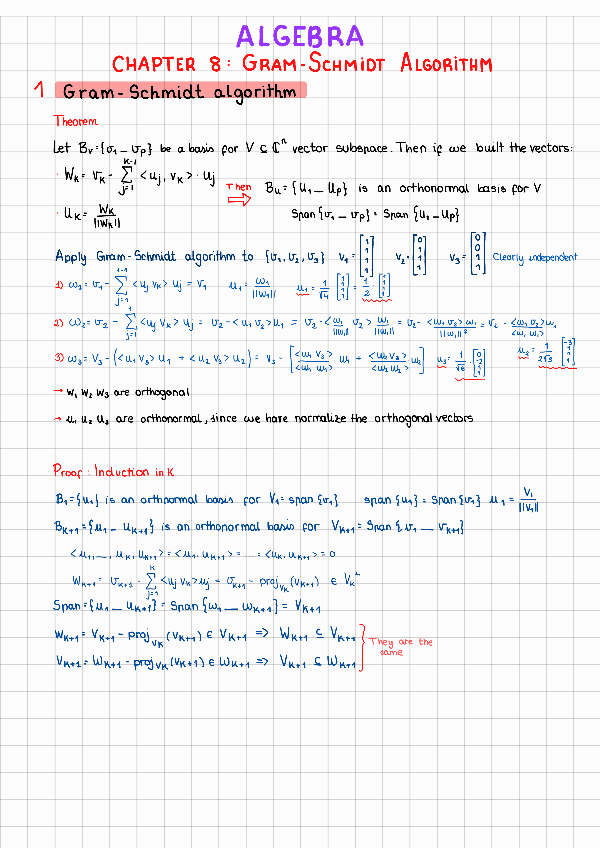 ALGEBRA
CHAPTER 8: GRAM-SCHMIDT ALGORITHM
1 Gram-Schmidt algorithm
Theorem
Let Bv={v1_ vp} be a basis for V ⊆ ℂ^n vector subspace. Then if we built the vectors:
· Wk = vk - ∑_{j=1}^{k-1} <uj, vk> · uj
Then Bu={u1_ up} is an orthonormal basis for V
· uk = Wk/||Wk||
Span{v1_ vp} = Span{u1_ up}
Apply Gram-Schmidt algorithm to {v1, v2, v3} v1 = [1 1 1 1] v2 = [0 1 1 1] v3 = [0 0 1 1] Clearly independent
1) w2 = v1 - ∑_{j=1}^{1-1} <uj vk> uj = v1 u1 = w1/||w1|| u1 = 1/√4 [1 1 1 1] = 1/2 [1 1 1 1]
2) w2 = v2 - ∑_{j=1}^{1} <uj vk> uj = v2 - <u1 v2> u1 = v2 - <w1/||w1|| v2> w1/||w1|| = v2 - <w1 v2> w1/||w1||² = v2 - <w1 v2> w1/<w1 w1>
u2 = 1/2√3 [-3 1 1 1]
3) w3 = v3 - (<u1 v3> u1 + <u2 v3> u2) = v3 - [<w1 v3>/<w1 w1> w1 + <w2 v3>/<w2 w2> w2] u3 = 1/√6 · [0 -2 1 1]
→ w1 w2 w3 are orthogonal
→ u1 u2 u3 are orthonormal, since we have normalize the orthogonal vectors
Proof: Induction in K
B1={u1} is an orthnormal basis for V1 = span{v1} span{u1} = Span{v1} u1 = v1/||v1||
Bk+1={u1_ uk+1} is an orthonormal basis for Vk+1 = Span{v1_ vk+1}
<u1,_, uk, uk+1> = <u1, uk+1> = ... = <uk, uk+1> = 0
Wk+1 = vk+1 - ∑_{j=1}^{k} <uj vk> uj = vk+1 - proj_{Vk}(vk+1) ∈ Vk^⊥
Span={u1_ uk+1} = Span{w1_ wk+1} = Vk+1
Wk+1 = Vk+1 - proj_{Vk}(vk+1) ∈ Vk+1 => Wk+1 ⊆ Vk+1
They are the same
Vk+1 = Wk+1 - proj_{Vk}(vk+1) ∈ Wk+1 => Vk+1 ⊆ Wk+1